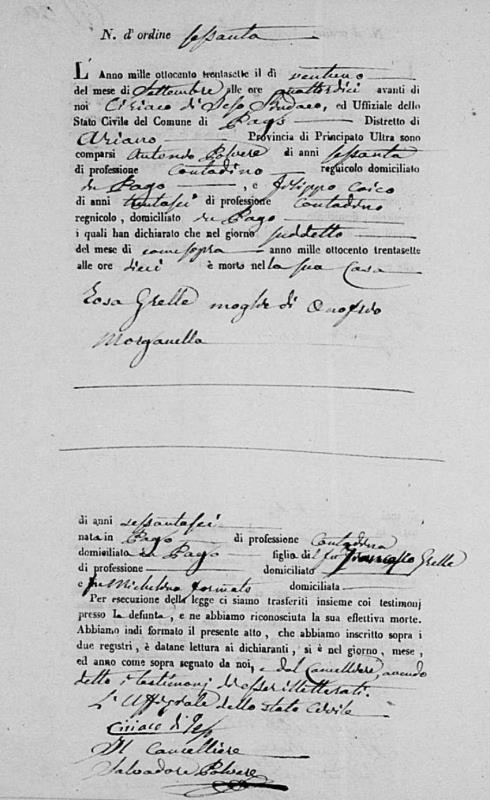 N. d'ordine sessanta
L'Anno mille ottocento trentasette il dì ventuno
del mese di Settembre alle ore quattordici avanti di
noi Ciriaco di Jeso Sindaco, ed Uffiziale dello
Stato Civile del Comune di Pago Distretto di
Ariano Provincia di Principato Ultra sono
comparsi Antonio Polvere di anni sessanta
di professione Contadino regnicolo domiciliato
in Pago, e Filippo Caico
di anni trentasei di professione Contadino
regnicolo, domiciliato in Pago
i quali han dichiarato che nel giorno suddetto
del mese di come sopra anno mille ottocento trentasette
alle ore dieci è morto nella sua Casa
Rosa Grelle moglie di Onofrio
Morganella
di anni sessantasei
nata in Pago di professione Contadina
domiciliato in Pago figlia di fu Grelle
di professione domiciliato
e fu Michelina Formato domiciliata
Per esecuzione della legge ci siamo trasferiti insieme coi testimonj
presso la defunta, e ne abbiamo riconosciuta la sua effettiva morte.
Abbiamo indi formato il presente atto, che abbiamo inscritto sopra i
due registri, è datane lettura ai dichiaranti, si è nel giorno, mese,
ed anno come sopra segnato da noi, e dal Cancelliere, avendo
detto i testimonj d'esser illetterati.
L'Uffiziale dello stato Civile
Ciriaco di Jeso
Il Cancelliere
Salvadore Polvere